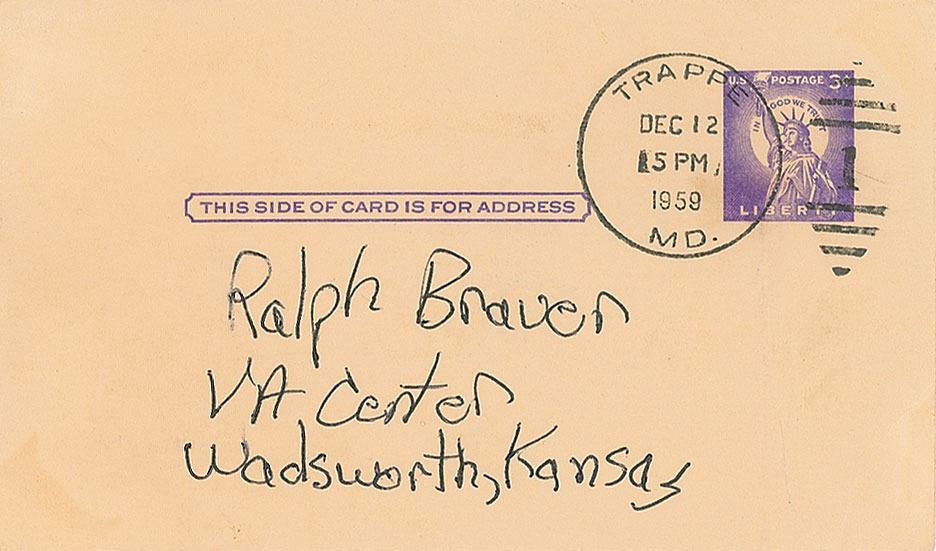 TRAPPE
DEC 12
5 PM
1959
MD.
U.S. POSTAGE 3¢
IN GOD WE TRUST
LIBERTY
1
THIS SIDE OF CARD IS FOR ADDRESS
Ralph Braver
VA Center
Wadsworth, Kansas